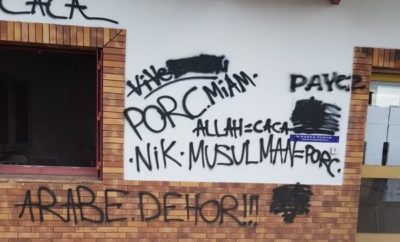 CACA
Vive
PORC. MIAM.
PAYEZ
ALLAH=CACA
.NIK. MUSULMAN=PORC.
ARABE. DEHOR!!!